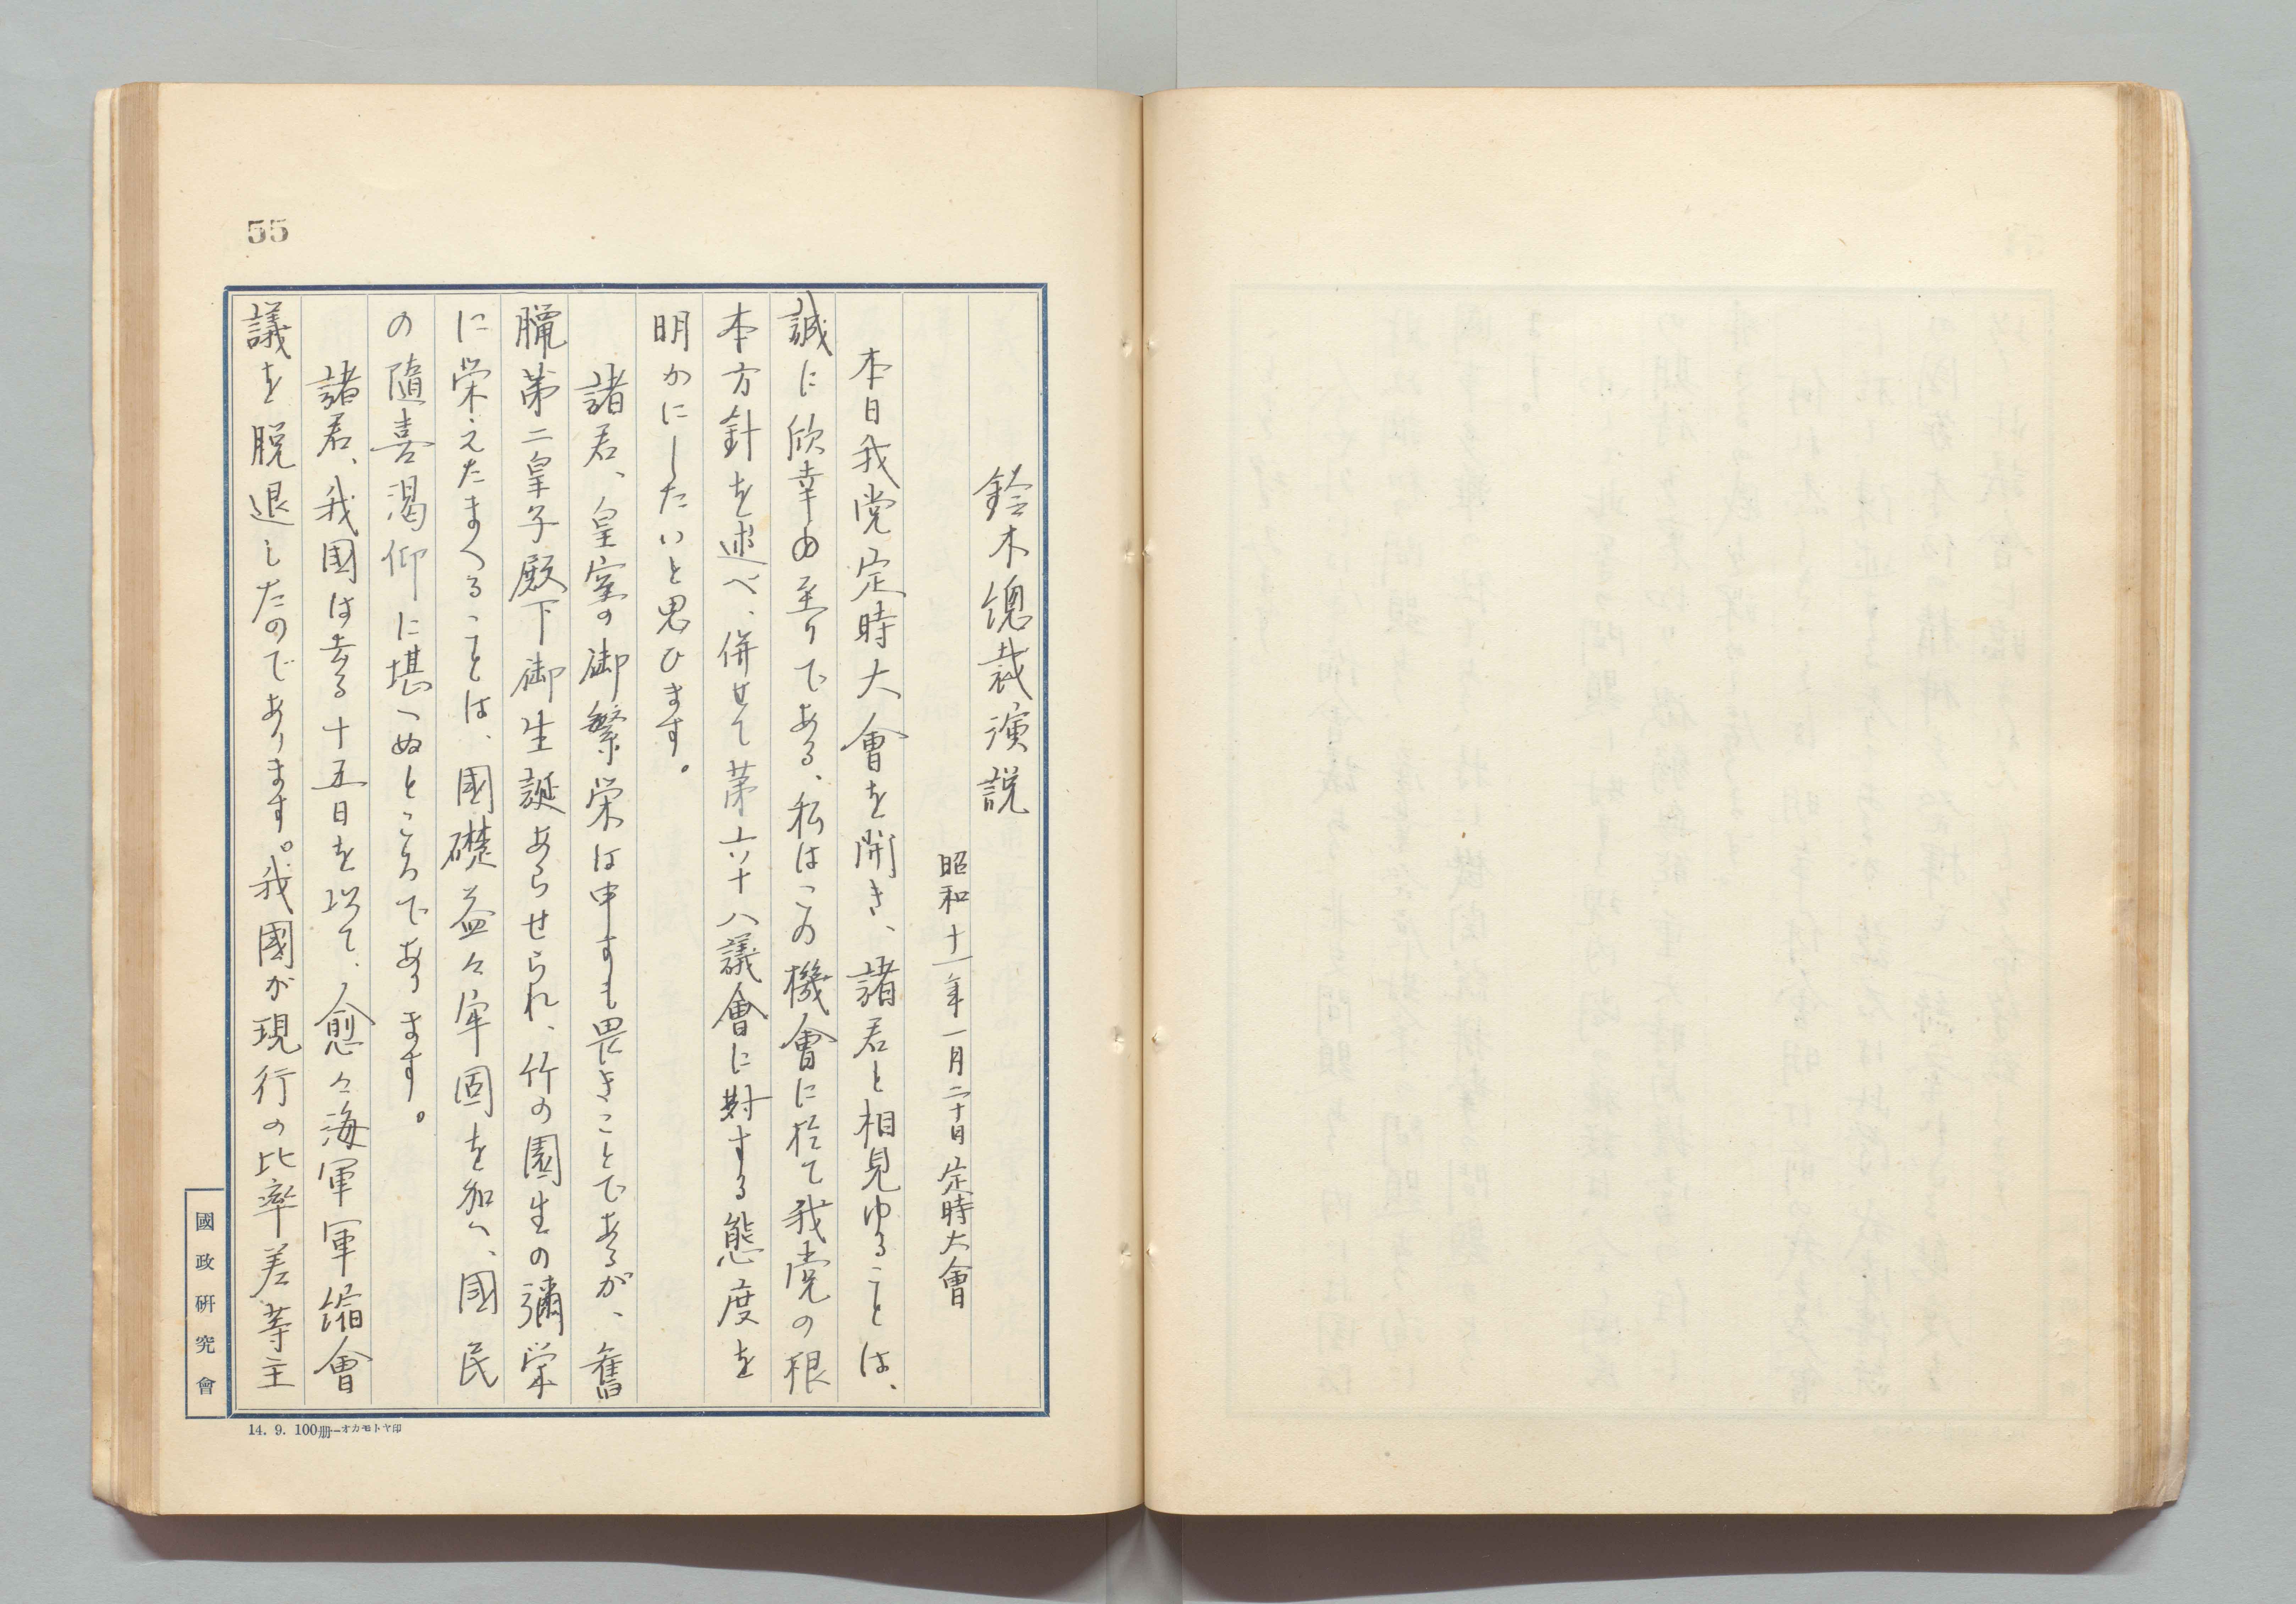 55
鈴木總裁演説
昭和十一年一月二十日定時大會
本日我党定時大會を開き、諸君と相見ゆることは、
誠に欣幸の至りである、私はこの機會に於て我党の根
本方針を述べ、併せて第六十八議會に對する態度を
明かにしたいと思ひます。
諸君、皇室の御繁栄は申すも畏きことであるが、舊
臘第二皇子殿下御生誕あらせられ、竹の園生の彌栄
に栄えたまへることは、國礎益々牢固を加へ、國民
の随喜渇仰に堪へぬところであります。
諸君、我国は去る十五日を以て、愈々海軍軍縮會
議を脱退したのであります。我國が現行の比率差等主
國政研究會
14. 9. 100册―オカモトヤ印